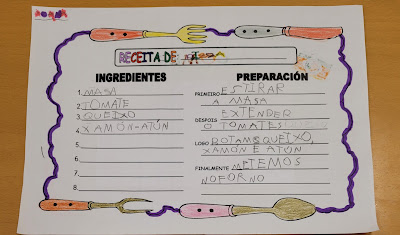 RECEITA DE PIZZA
INGREDIENTES
1. MASA
2. TOMATE
3. QUEIXO
4. XAMÓN-ATÚN
5.
6.
7.
8.
PREPARACIÓN
PRIMEIRO ESTIRAR
A MASA
EXTENDER
DESPOIS O TOMATE
LOGO BOTAMS QUEIXO,
XAMÓN E ATÚN
FINALMENTE METEMOS
NOFORNO